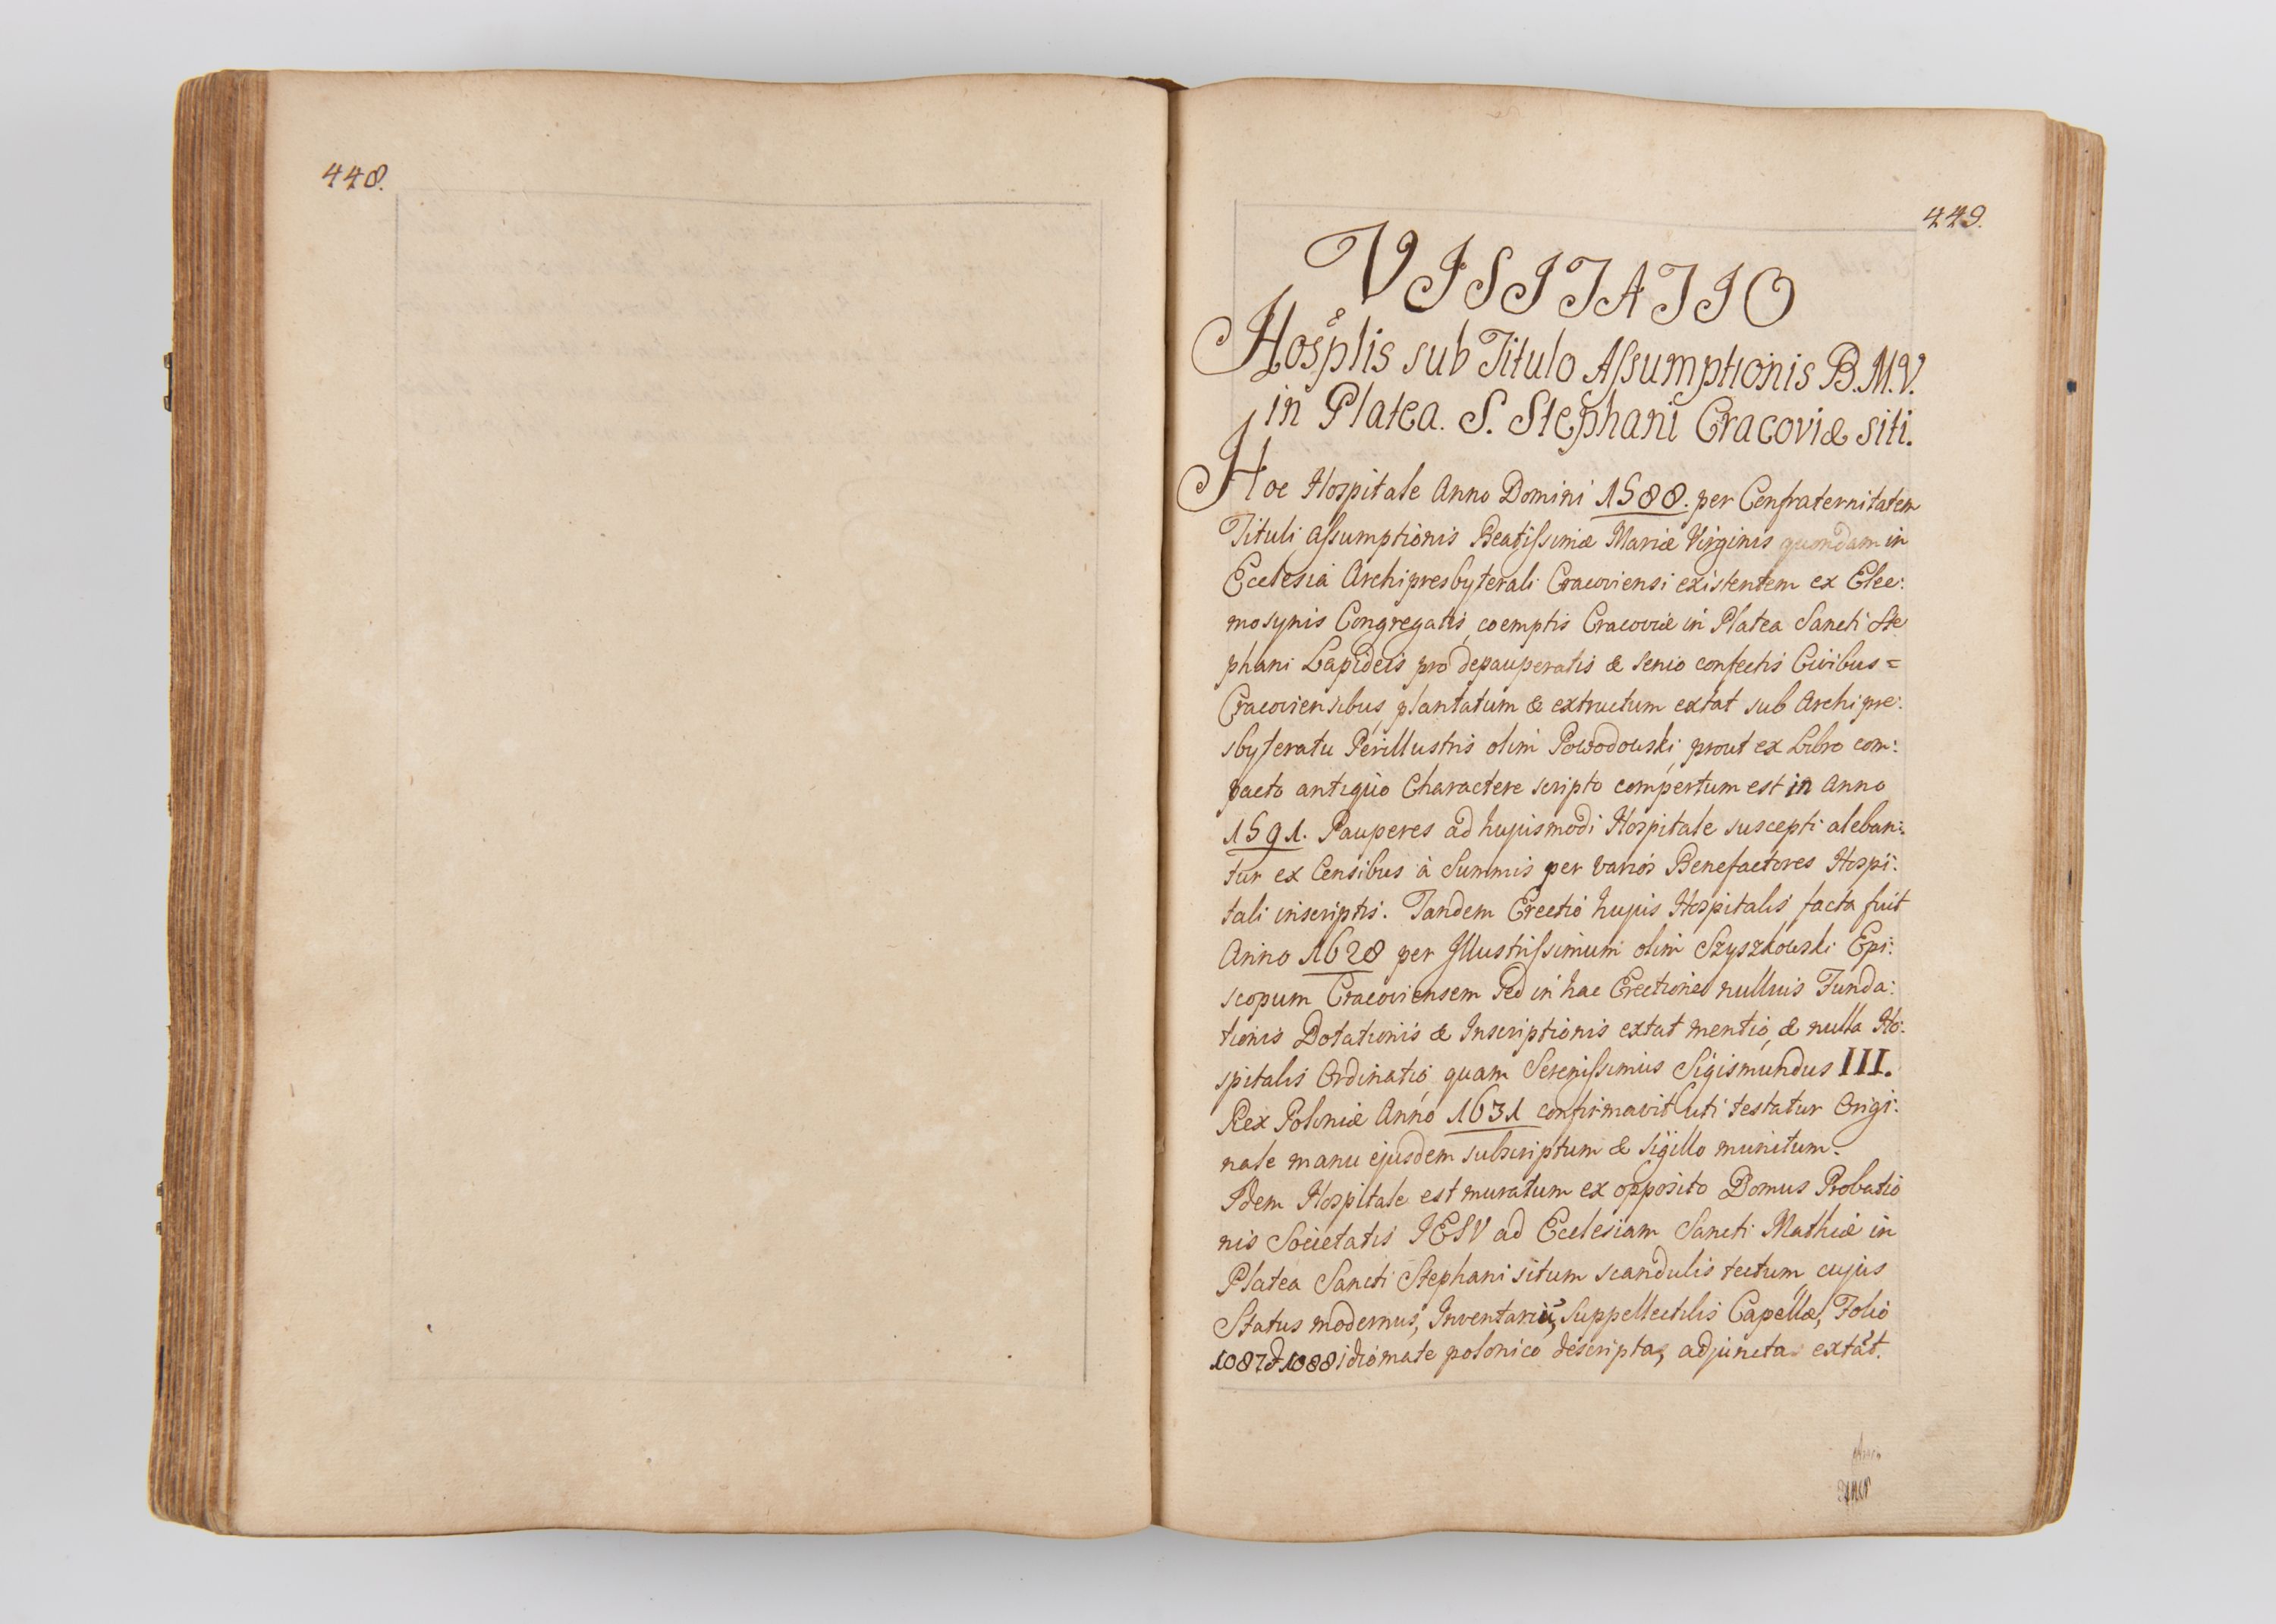 448.
449.
VISITATIO
Hosplis sub Titulo Aſsumptionis B.M.V.
in Platea. S. Stephani Cracoviæ siti.
Hoc Hospitale Anno Domini 1588. per Confraternitatem
Tituli Aſsumptionis Beatiſsimæ Mariæ Virginis quondam in
Ecclesia Archipresbyterali Cracoviensi existentem ex Elee:
mosynis Congregatis, coemptis Cracoviæ in Platea Sancti Ste
phani Lapideis pro depauperatis & senio confectis Civibus =
Cracoviensibus plantatum & extructum extat sub Archipre:
sbyteratu Perillustris olim Powodowski, prout ex Libro com:
pacto antiquo Charactere scripto compertum est in Anno
1591. Pauperes ad hujusmodi Hospitale suscepti aleban:
tur ex Censibus à Summis per varios Benefactores Hospi:
tali inscriptis. Tandem Erectio hujus Hospitalis facta fuit
Anno 1628 per Illustriſsimum olim Szyszkowski Epi:
scopum Cracoviensem sed in hac Erectione nullius Funda:
tionis Dotationis & Inscriptionis extat mentio, & nulla Ho:
spitalis Ordinatio, quam Sereniſsimus Sigismundus III.
Rex Poloniæ Anno 1631 confirmavit uti testatur Origi:
nale manu ejusdem subscriptum & sigillo munitum.
Idem Hospitale est muratum ex opposito Domus Probatio
nis Societatis IESV ad Ecclesiam Sancti Mathiæ in
Platea Sancti Stephani situm scandulis tectum, cujus
Status modernus, Inventariu, Suppellectilis Capellæ, Folio
1087 & 1088 idiomate polonico descripta, adjuncta extat.